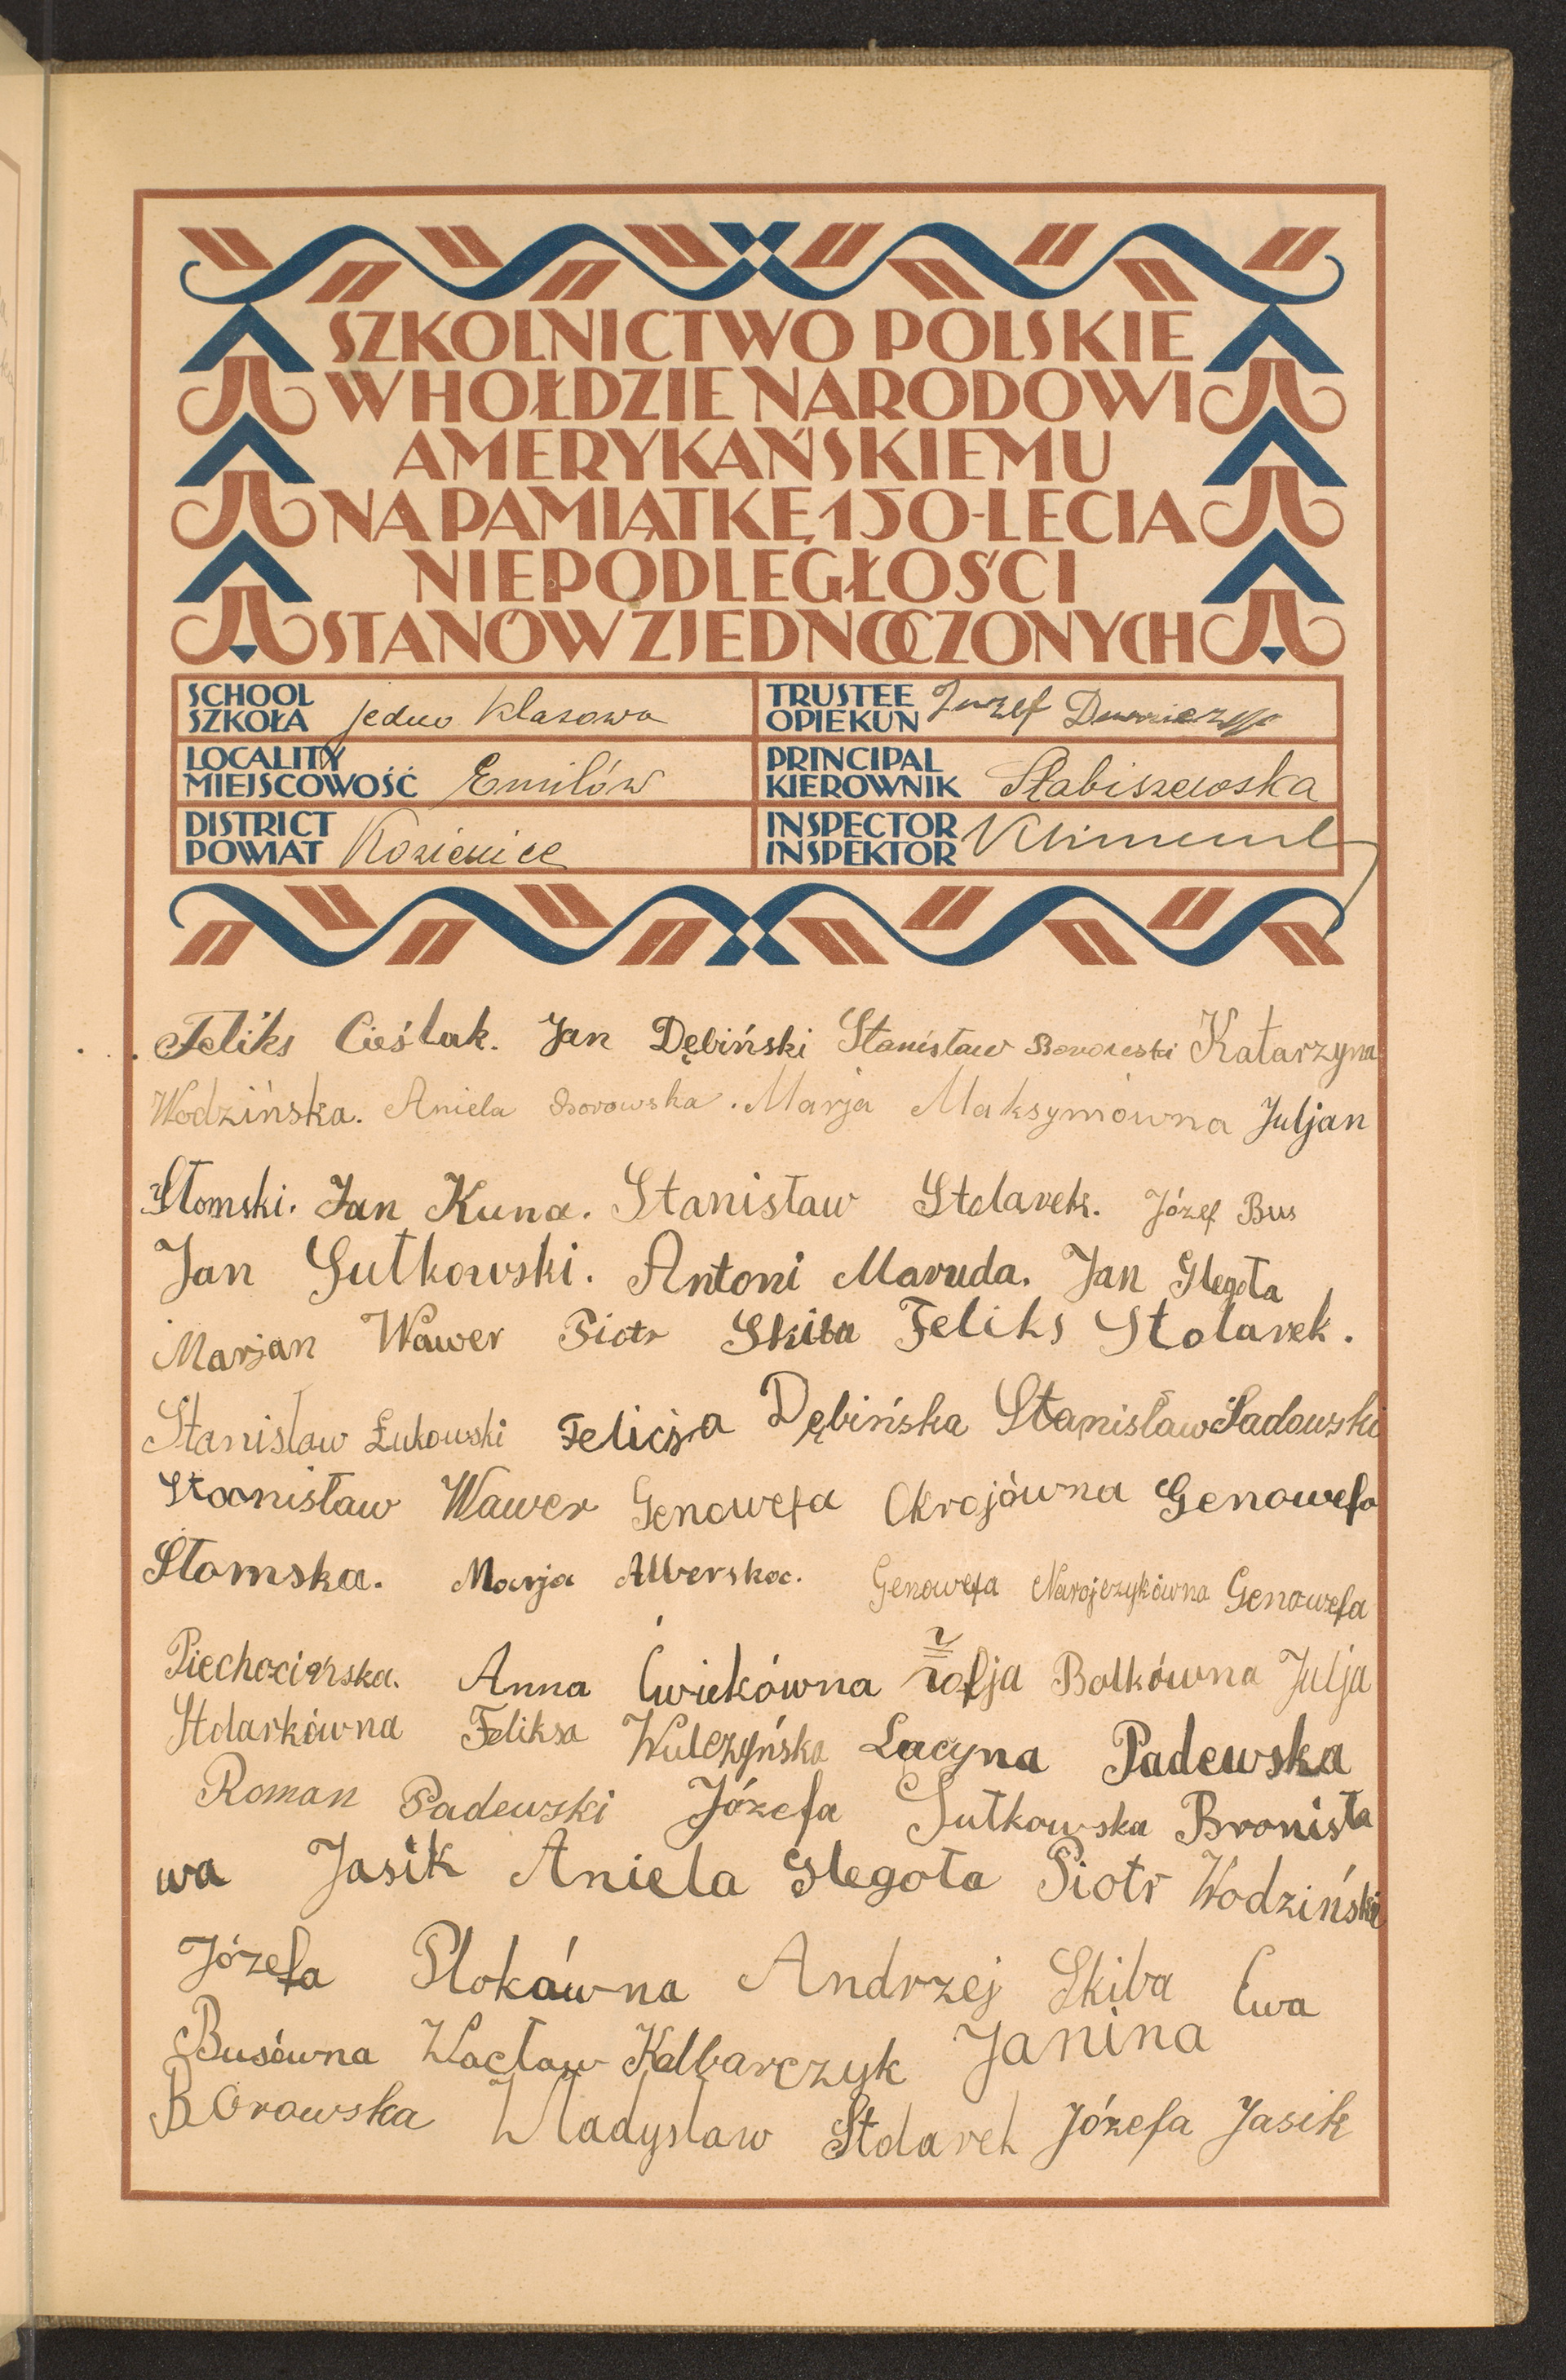 SZKOLNICTWO POLSKIE
W HOŁDZIE NARODOWI
AMERYKAŃSKIEMU
NA PAMIĄTKĘ 150-LECIA
NIEPODLEGŁOŚCI
STANÓW ZJEDNOCZONYCH
SCHOOL
SZKOŁA jedno klasowa
TRUSTEE
OPIEKUN Józef
LOCALITY
MIEJSCOWOŚĆ Emilów
PRINCIPAL
KIEROWNIK Słabiszewska
DISTRICT
POWIAT Kozienice
INSPECTOR
INSPEKTOR
Feliks Cieślak. Jan Dębiński Stanisław Borowski Katarzyna
Wodzińska. Aniela Borowska. Marja Maksymówna Juljan
Słomski. Jan Kuna. Stanisław Stolarek. Józef Bus
Jan Sutkowski. Antoni Maruda. Jan Glegoła
Marjan Wawer Piotr Skiba Feliks Stolarek.
Stanisław Łukowski Felicja Dębińska Stanisław Sadowski
Stanisław Wawer Genowefa Okrojówna Genowefa
Słomska. Marja Alberska. Genowefa Narojczykówna Genowefa
Piechocińska. Anna Ćwiekówna Zofja Bolkówna Julja
Stolarkówna Feliksa Wulczyńska Łucyna Padewska
Roman Padewski Józefa Sutkowska Bronisła
wa Jasik Aniela Glegoła Piotr Wodziński
Józefa Plokówna Andrzej Skiba Ewa
Busówna Wacław Kalbarczyk Janina
Borowska Władysław Stolarek Józefa Jasik